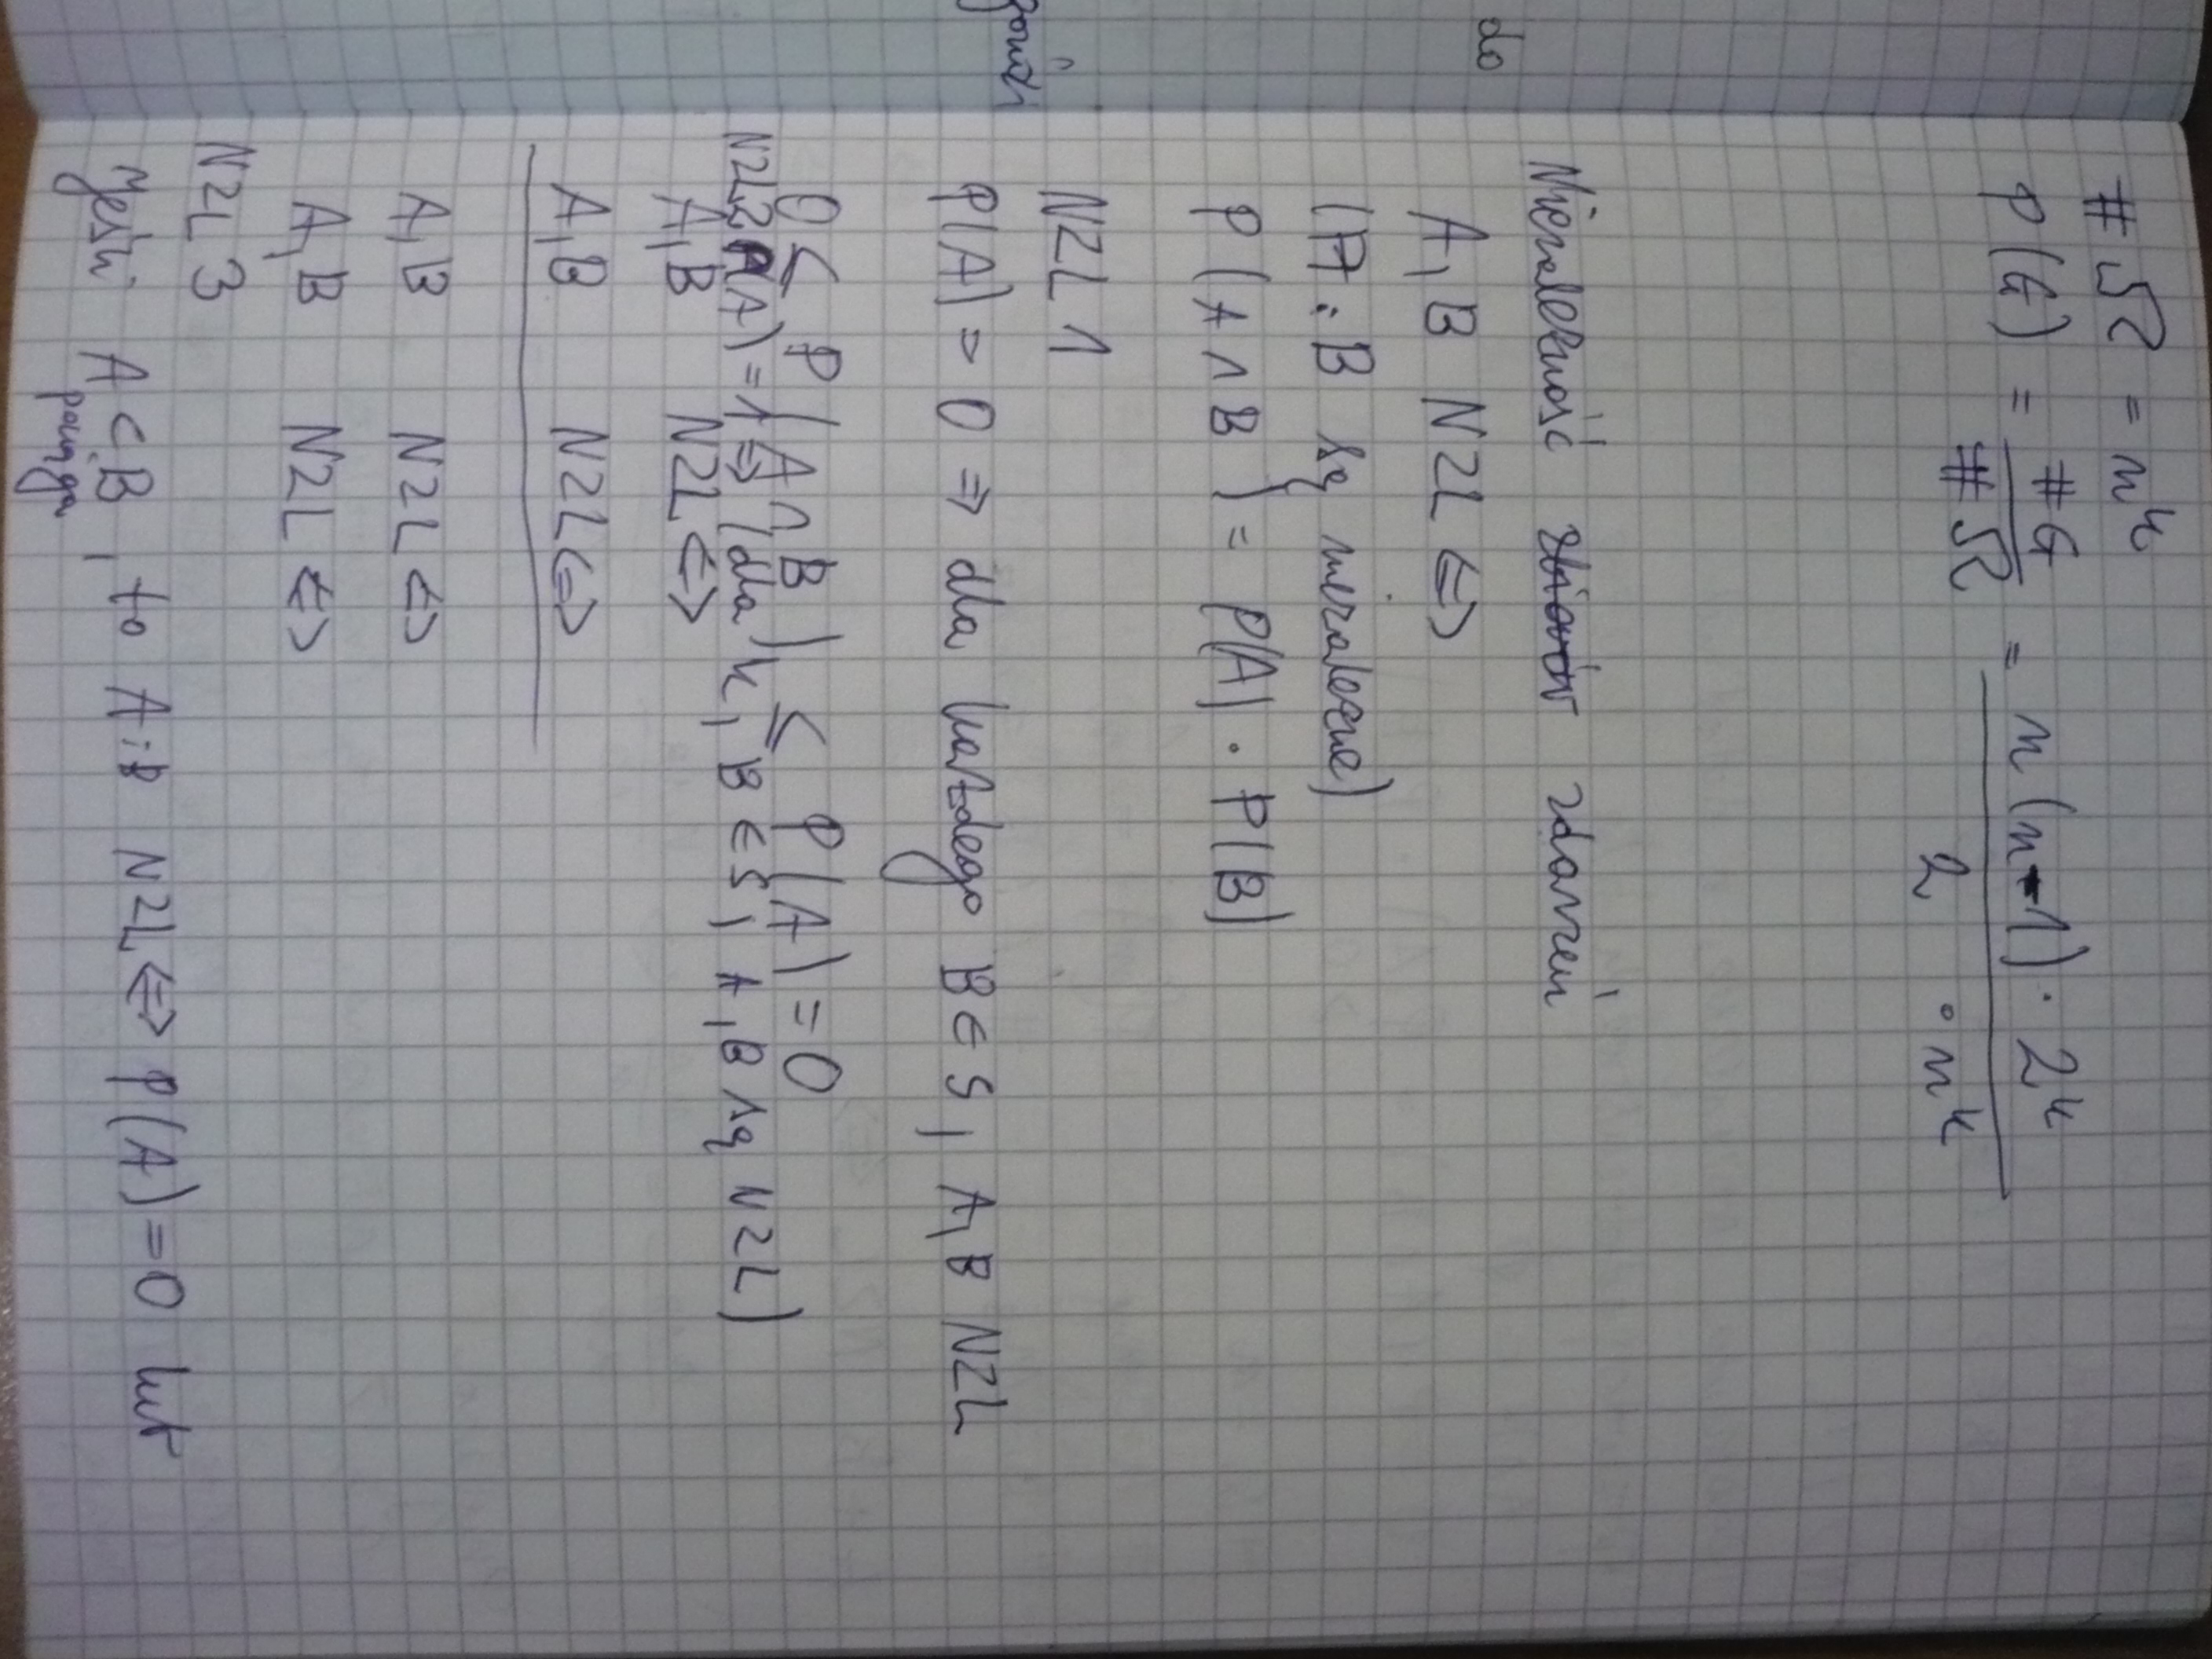 do
# Ω = n^k
P(G) = #G / #Ω = n(n-1) · 2^k / 2 · n^k
Niezależność zbiorów zdarzeń
A, B NZL ⇔
(A i B są niezależne)
P(A ∩ B) = P(A) · P(B)
NZL 1
P(A) = 0 ⇒ dla każdego B ∈ S, A, B NZL
0 ≤ P(A ∩ B) ≤ P(A) = 0
NZL 2 P(A) = 1 ⇒ (dla k, B ∈ S, A, B są NZL)
A, B NZL ⇔
A, B NZL ⇔
A, B NZL ⇔
A, B NZL ⇔
NZL 3
Jeśli A ⊂ B, to A i B NZL ⇔ P(A) = 0 lub
pociąga